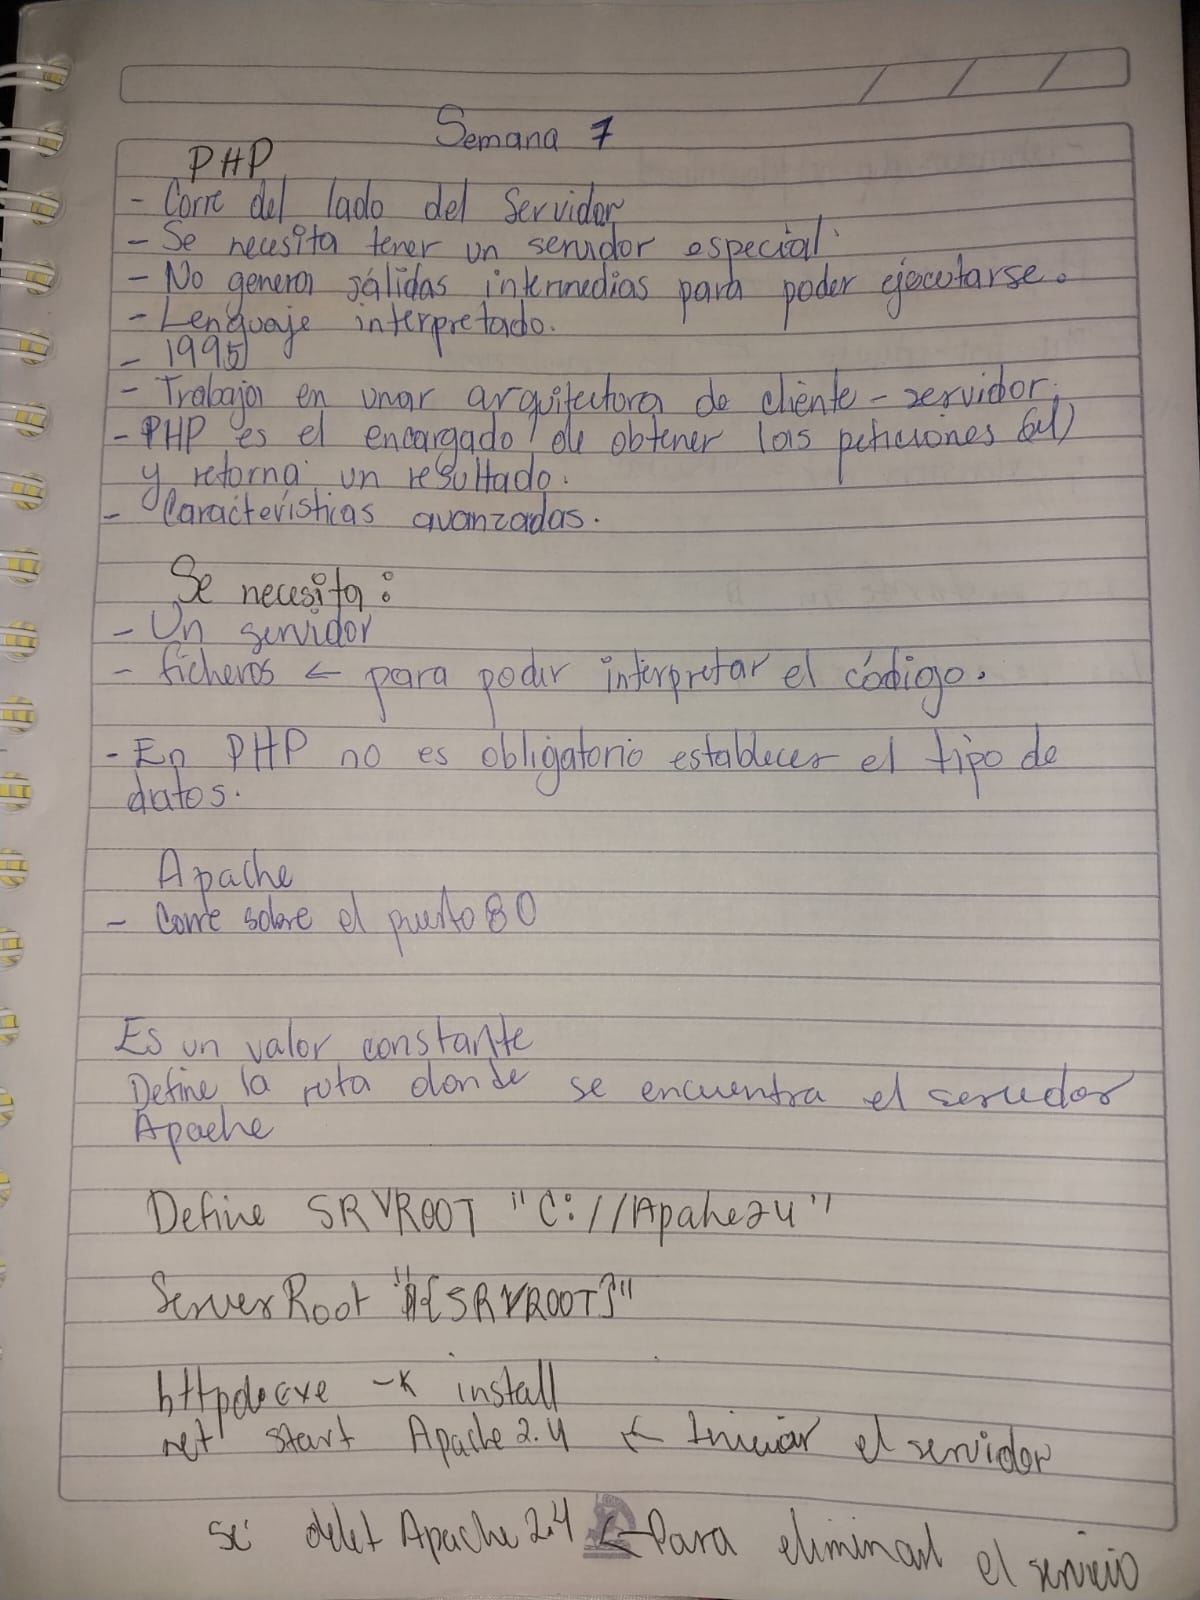 Semana 7
PHP
- Corre del lado del Servidor
- Se necesita tener un servidor especial.
- No genera sálidas intermedias para poder ejecutarse.
- Lenguaje interpretado.
- 1995
- Trabaja en unar arquitectura de cliente - servidor.
- PHP es el encargado de obtener las peticiones
y retorna un resultado.
- Características avanzadas.
Se necesita:
- Un servidor
- ficheros ← para poder interpretar el código.
- En PHP no es obligatorio establecer el tipo de
datos.
Apache
- Corre sobre el puerto 80
Es un valor constante
Define la ruta donde se encuentra el servidor
Apache
Define SRVROOT "C://Apahe24"
ServerRoot "${SRVROOT}"
httpd.exe -k install
net start Apache2.4 ← Iniciar el servidor
sc delet Apache2.4 ← Para eliminar el servicio